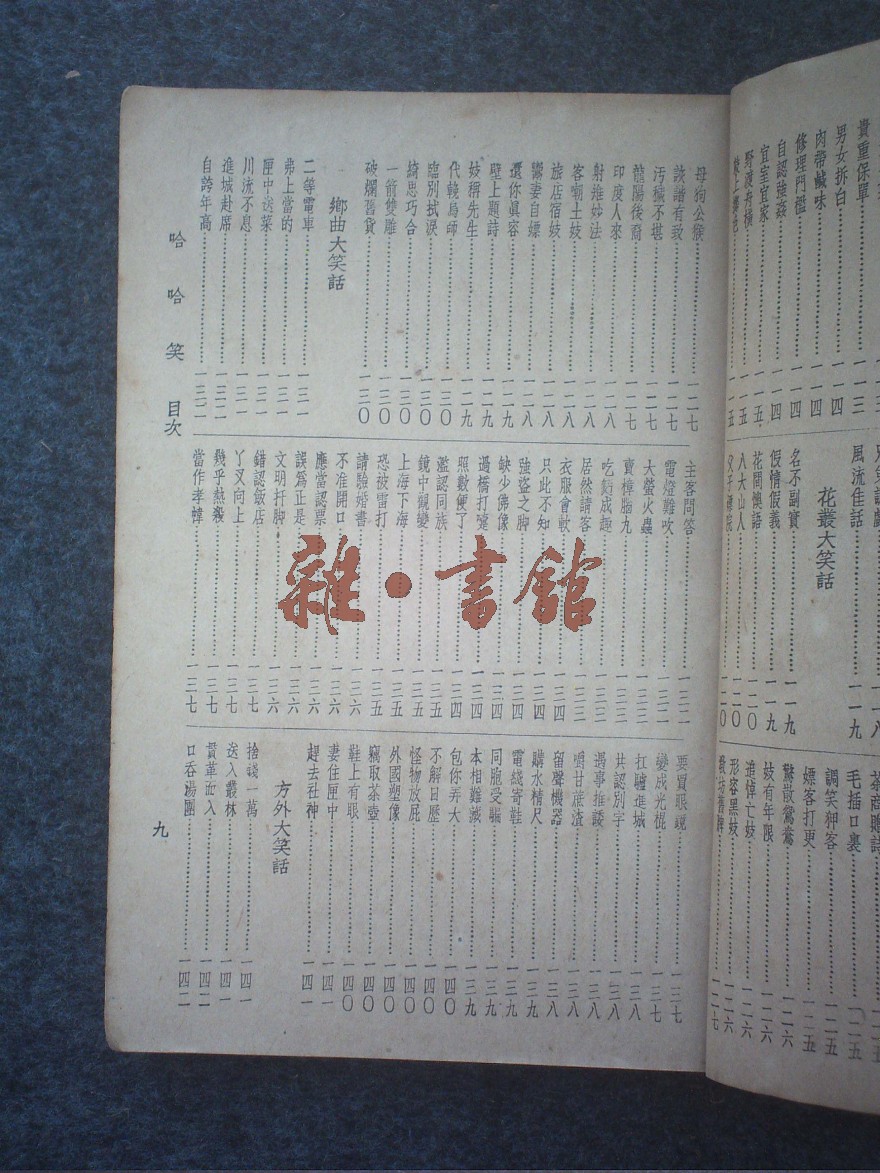 貴重保單……一一三
男女拆白
肉帶鹹味……一一四
修理門檻……一一四
自認強姦……一一四
宜室宜家……一一五
野渡舟橫……一一五
風流佳話……一一九
花叢大笑話
名不副實……一一九
假情假義……一一九
花間懊語……一二〇
八大山人……一二〇
毛插口裏……一二五
調笑狎客……一二五
嫖客打更……一二五
驚散鴛鴦……一二六
妓有年限……一二六
追悼亡妓……一二六
形容黑妓……一二六
母狗公猴……一二七
談諧有致……一二七
汚穢不堪……一二七
龍陽後裔……一二七
印度人來……一二八
射推妙法……一二八
客嘲土妓……一二八
旅店宿妓……一二八
鬻妻自嫖……一二八
還你眞容……一二九
壁上題詩……一二九
妓稱先生……一二九
代輓烏師……一三〇
臨別拭淚……一三〇
綺思巧合……一三〇
一箭雙雕……一三〇
破爛舊貨……一三〇
鄉曲大笑話
二等電車……一三一
弗上當的……一三一
匣中送菜……一三一
川流不息……一三一
進城赴席……一三二
自誇年高……一三二
主客問答……一三二
電燈難吹……一三二
大螢火蟲……一三三
賣樟腦九……一三三
吃虧成趣……一三三
居然請客……一三三
衣服會軟……一三四
只此不知……一三四
強盜之脚……一三四
缺少佛像……一三四
過橋打墥……一三四
照數便了……一三四
濫認同族……一三五
鏡中觀變……一三五
上海下海……一三五
恐被雷打……一三五
請驗婚書……一三六
不准開口……一三六
應當認票……一三六
誤爲正是……一三六
文明扦脚……一三六
錯認飯店……一三七
丫叉向上……一三七
幾乎熱殺……一三七
當作孝幛……一三七
要買眼鏡……一三七
變成光棍……一三七
扛驢進城……一三八
共認別字……一三八
遇事推諉……一三八
嚼甘蔗渣……一三八
留聲機器……一三八
購水精尺……一三九
電綫寄鞋……一三九
同胞受騙……一三九
本相難滅……一三九
包你弄大……一四〇
不解日歷……一四〇
怪物放屁……一四〇
外國塑像……一四〇
竊取茶壺……一四〇
鞋上有眼……一四〇
妻住匣中……一四一
趕去社神……一四一
方外大笑話
捨錢一萬……一四一
送入叢林……一四一
貫革而入……一四二
口呑湯團……一四二
哈哈笑 目次
九
雜·書館